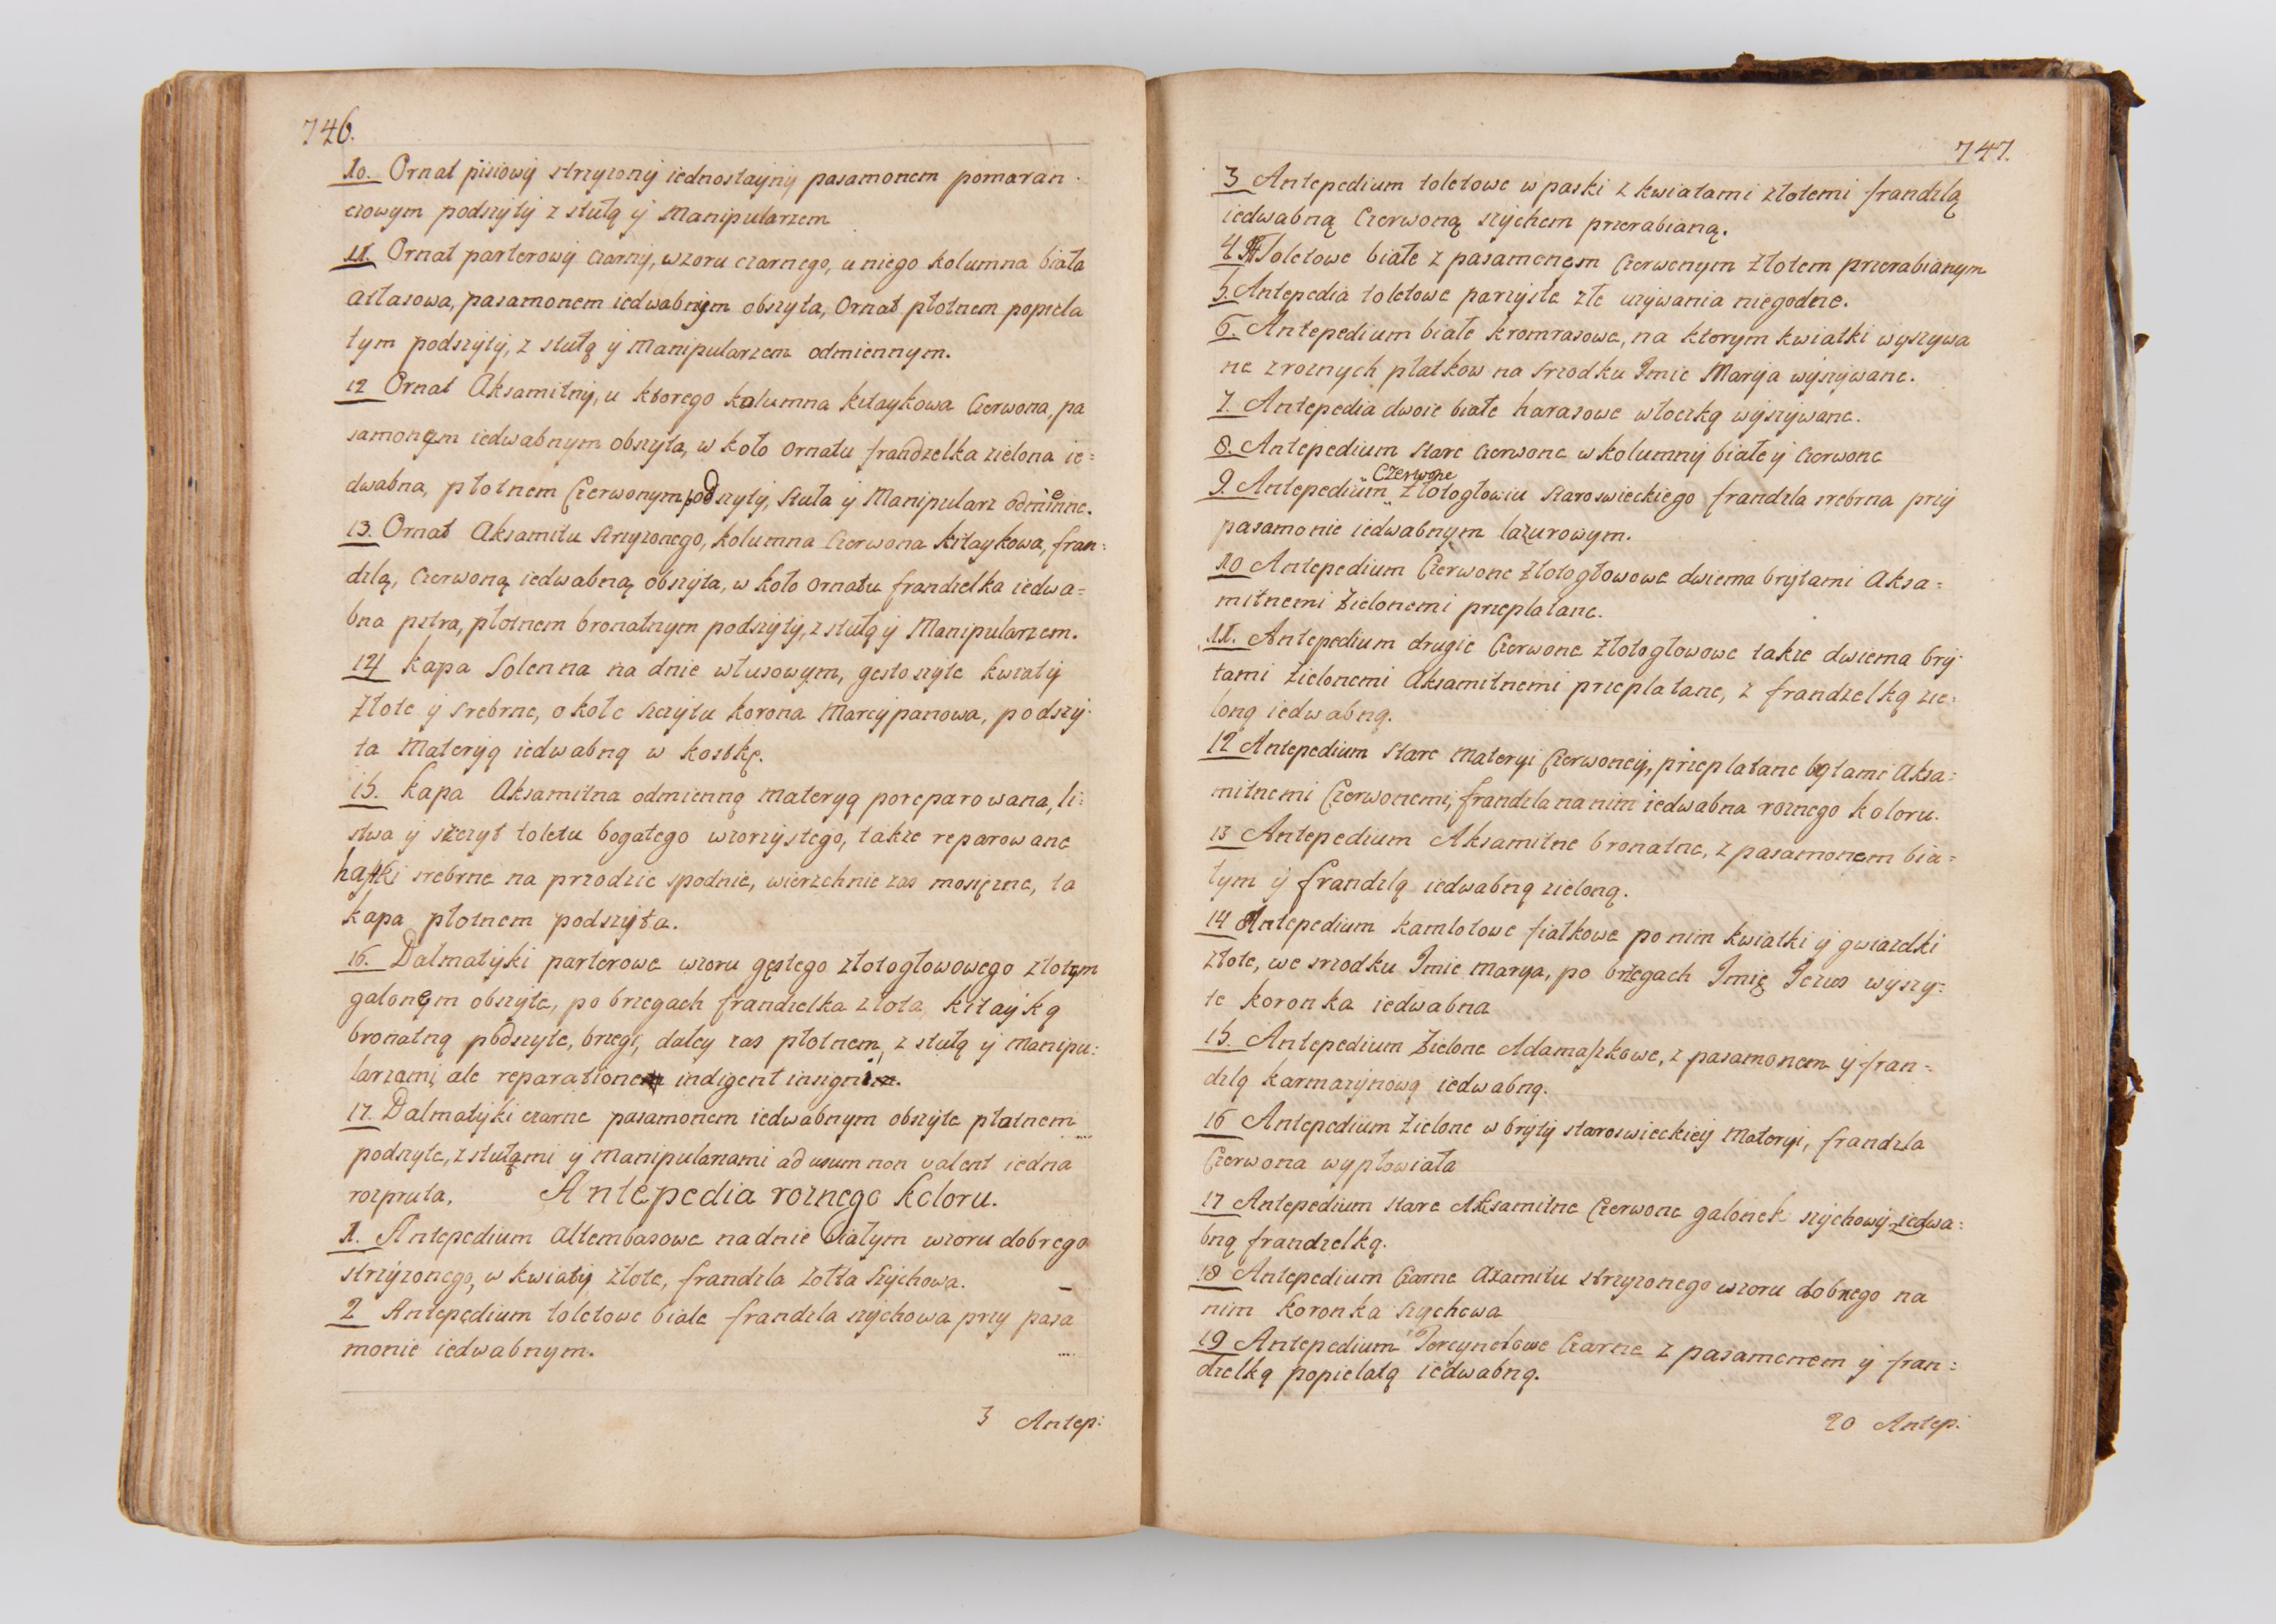 746.
10. Ornat pisiowy strzyzony iednostayny pasamonem pomaran
czowym podszyty z stułą y Manipularzem
11. Ornat parterowy czarny, wzoru czarnego, u niego kolumna biała
atłasowa, pasamonem iedwabnym obszyta, Ornat płotnem popiela
tym podszyty, z stułą y Manipularzem odmiennym.
12 Ornat Aksamitny, u ktorego kolumna kitaykowa Czerwona, pa
samonem iedwabnym obszyta, w koło ornatu frandzelka zielona ie=
dwabna, płotnem Czerwonym podszyty, Stuła y Manipularz odmienne.
13. Ornat Aksamitu Strzyzonego, kolumna Czerwona kitaykowa, fran=
dzlą, Czerwoną iedwabną obszyta, w koło ornatu frandzelka iedwa=
bna pstra, płotnem bronatnym podszyty, z stułą y Manipularzem.
14 kapa Solenna na dnie włusowym, gęsto szyte kwiaty
złote y srebrne, około szczytu korona Marcypanowa, podszy
ta Materyą iedwabną w kostkę.
15. kapa Aksamitna odmienną materyą poreparowana, li=
stwa y szczyt toletu bogatego wzorzystego, także reparowane
haftki srebrne na przodzie spodnie, wierzchnie zas mosięzne, ta
kapa płotnem podszyta.
16. Dalmatyki parterowe wzoru gęstego złotogłowowego złotym
galonem obszyte, po brzegach frandzelka złota, kitayką
bronatną podszyte, brzegi, daley zas płotnem, z stułą y manipu=
larzami, ale reparatione indigent insigni.
17. Dalmatyki czarne pasamonem iedwabnym obszyte płotnem
podszyte, z stułami y Manipularzami ad usum non valent iedna
rozpruta, Antepedia roznego Koloru.
1. Antepedium Altembasowe na dnie białym wzoru dobrego
strzyzonego, w kwiaty złote, frandzla żołta Szychowa.
2 Antepedium toletowe białe frandzla szychowa przy pasa
monie iedwabnym.
3 Antep:
747.
3 Antepedium toletowe w paski z kwiatami złotemi frandzlą
iedwabną Czerwoną szychem przerabianą.
4. Toletowe białe z pasamonem Czerwonym złotem przerabianym
5. Antepedia toletowe parzyste złe uzywania niegodne.
6. Antepedium białe kromrasowe, na ktorym kwiatki wyszywa
ne z roznych płatkow na srzodku Jmie Marya wyszywane.
7. Antepedia dwoie białe harasowe włoczką wyszywane.
8. Antepedium stare Czerwone w kolumny białe y Czerwone
9. Antepedium Czerwone złotogłowiu staroswieckiego frandzla srebrna przy
pasamonie iedwabnym lazurowym.
10 Antepedium Czerwone złotogłowowe dwiema brytami Aksa=
mitnemi Zielonemi przeplatane.
11. Antepedium drugie Czerwone złotogłowowe także dwiema bry
tami Zielonemi Aksamitnemi przeplatane, z frandzelką zie=
loną iedwabną.
12 Antepedium Stare Materyi Czerwoney, przeplatane brytami Aksa=
mitnemi Czerwonemi, frandzla na nim iedwabna roznego koloru.
13 Antepedium Aksamitne bronatne, z pasamonem bia=
łym y frandzlą iedwabną zieloną.
14 Antepedium kamlotowe fiałkowe po nim kwiatki y gwiazdki
złote, we srzodku Jmie Marya, po brzegach Jmię Jezus wyszy=
te koronka iedwabna
15. Antepedium Zielone Adamaszkowe, z pasamonem y fran=
dzlą karmazynową iedwabną.
16 Antepedium Zielone w bryty staroswieckiey Materyi, frandzla
Czerwona wypłowiała
17 Antepedium stare Aksamitne Czerwone galonek szychowy z iedwa=
bną frandzelką.
18 Antepedium Czarne Axamitu strzyzonego wzoru dobrego na
nim Koronka szychowa
19 Antepedium Tercynelowe Czarne z pasamonem y fran=
dzelką popielatą iedwabną.
20 Antep: